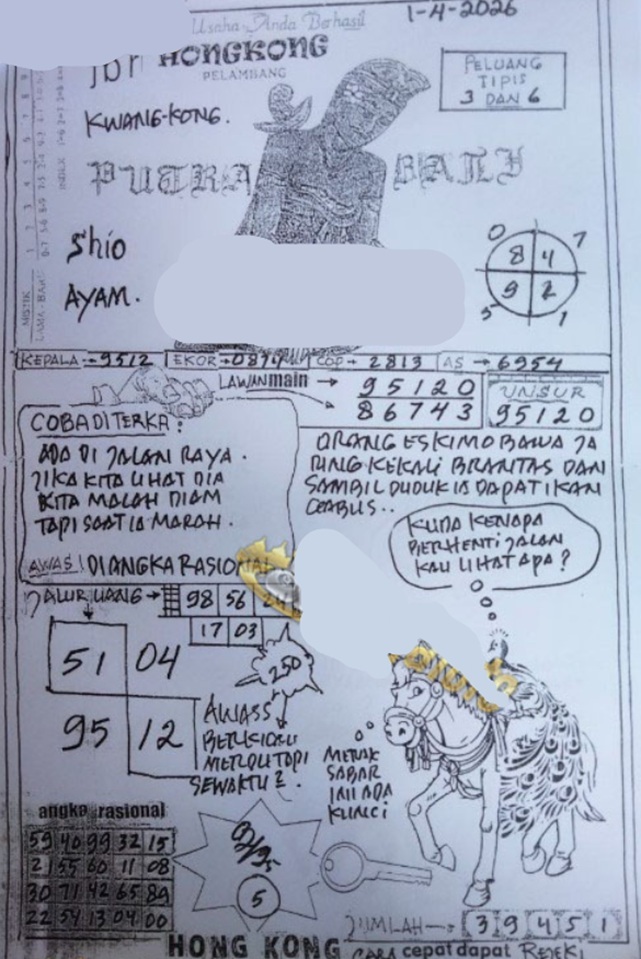 Usaha Anda Berhasil
1-4-2026
HONGKONG
PELAMBANG
PELUANG
TIPIS
3 DAN 6
KWANG-KONG.
PUTRA BALI
Shio
AYAM.
0 7
8 4
9 2
1
KEPALA → 9512
COP → 2813
AS → 6954
LAWAN main → 95120
86743
UNSUR
95120
COBA DITERKA:
ADA DI JALAN RAYA.
JIKA KITA LIHAT DIA
KITA MALAH DIAM
TAPI SAAT IA MARAH.
ORANG ESKIMO BAWA JA
RING KEKALI BRANTAS DAN
SAMBIL DUDUK IA DAPAT IKAN
KUDA KENAPA
BERHENTI JALAN
KAU LIHAT APA?
AWAS! DI ANGKA RASIONAL
JALUR UANG → 98 56
17 03
51 04
250
95 12
AWASS
SEWAKTU2.
MERAK
SABAR
INI ADA
KUNCI
angka rasional
59 40 99 32 15
21 55 60 11 08
30 71 42 65 89
22 54 13 04 00
5
JUMLAH → 3 9 4 5 1
HONG KONG
CARA cepat dapat REJEKI